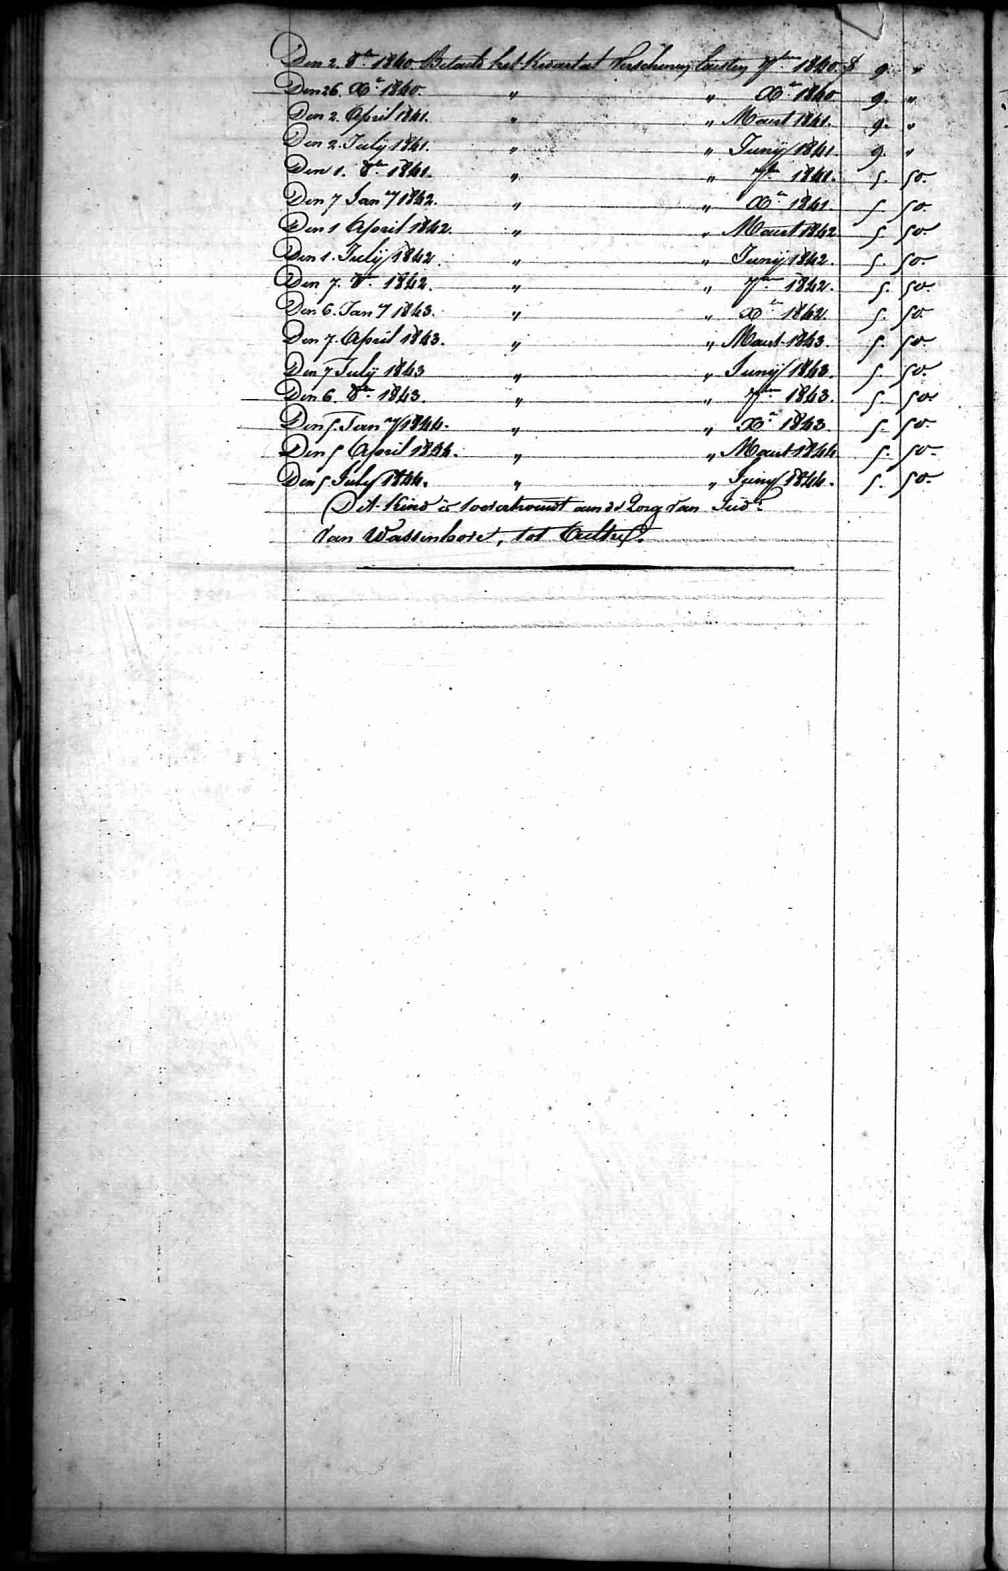 Den 2. 8br 1840. Betaelt het Kwartael Verschenen laesten 7ber 1840. f 9. "
Den 26 Xbr 1840. " " Xbr 1840 9. "
Den 2. April 1841. " " Maert 1841. 9. "
Den 2. July 1841. " " Junij 1841 9. "
Den 1. 8br 1841. " " 7ber 1841. 5. 50.
Den 7 Janry 1842. " " Xbr 1841. 5. 50.
Den 1 April 1842. " " Maert 1842 5. 50.
Den 1. Julij 1842. " " Junij 1842. 5. 50.
Den 7. 8br 1842. " " 7ber 1842. 5. 50.
Den 6. Janry 1843. " " Xbr 1842. 5. 50.
Den 7. April 1843. " " Maert 1843. 5. 50.
Den 7 July 1843 " " Junij 1843. 5. 50.
Den 6. 8br 1843. " " 7ber 1843. 5. 50
Den 5. Janry 1844. " " Xbr 1843. 5. 50.
Den 5 April 1844. " " Maert 1844 5. 50.
Den 5 July 1844. " " Junij 1844. 5. 50.
Dit Kind is toevertrouwt aen de Zorg van
Van Wassenhove, tot